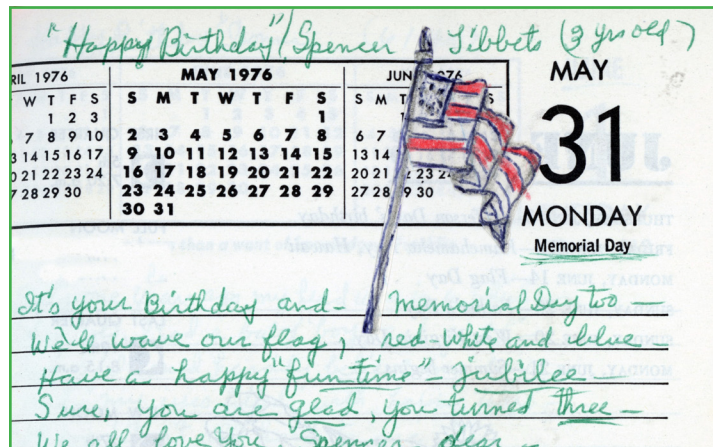 "Happy Birthday"! Spencer Tibbets (3 yrs old)
RIL 1976
W T F S
1 2 3
7 8 9 10
13 14 15 16 17
20 21 22 23 24
27 28 29 30
MAY 1976
S M T W T F S
1
2 3 4 5 6 7 8
9 10 11 12 13 14 15
16 17 18 19 20 21 22
23 24 25 26 27 28 29
30 31
JUN 76
S M T
6 7
13 14
20 21 22 23
27 28 29 30
MAY
31
MONDAY
Memorial Day
It's your Birthday and - Memorial Day too -
We'll wave our flag, red - white and blue -
Have a happy "fun time" - jubilee -
Sure, you are glad, you turned three -
We all love You, Spencer, dear -